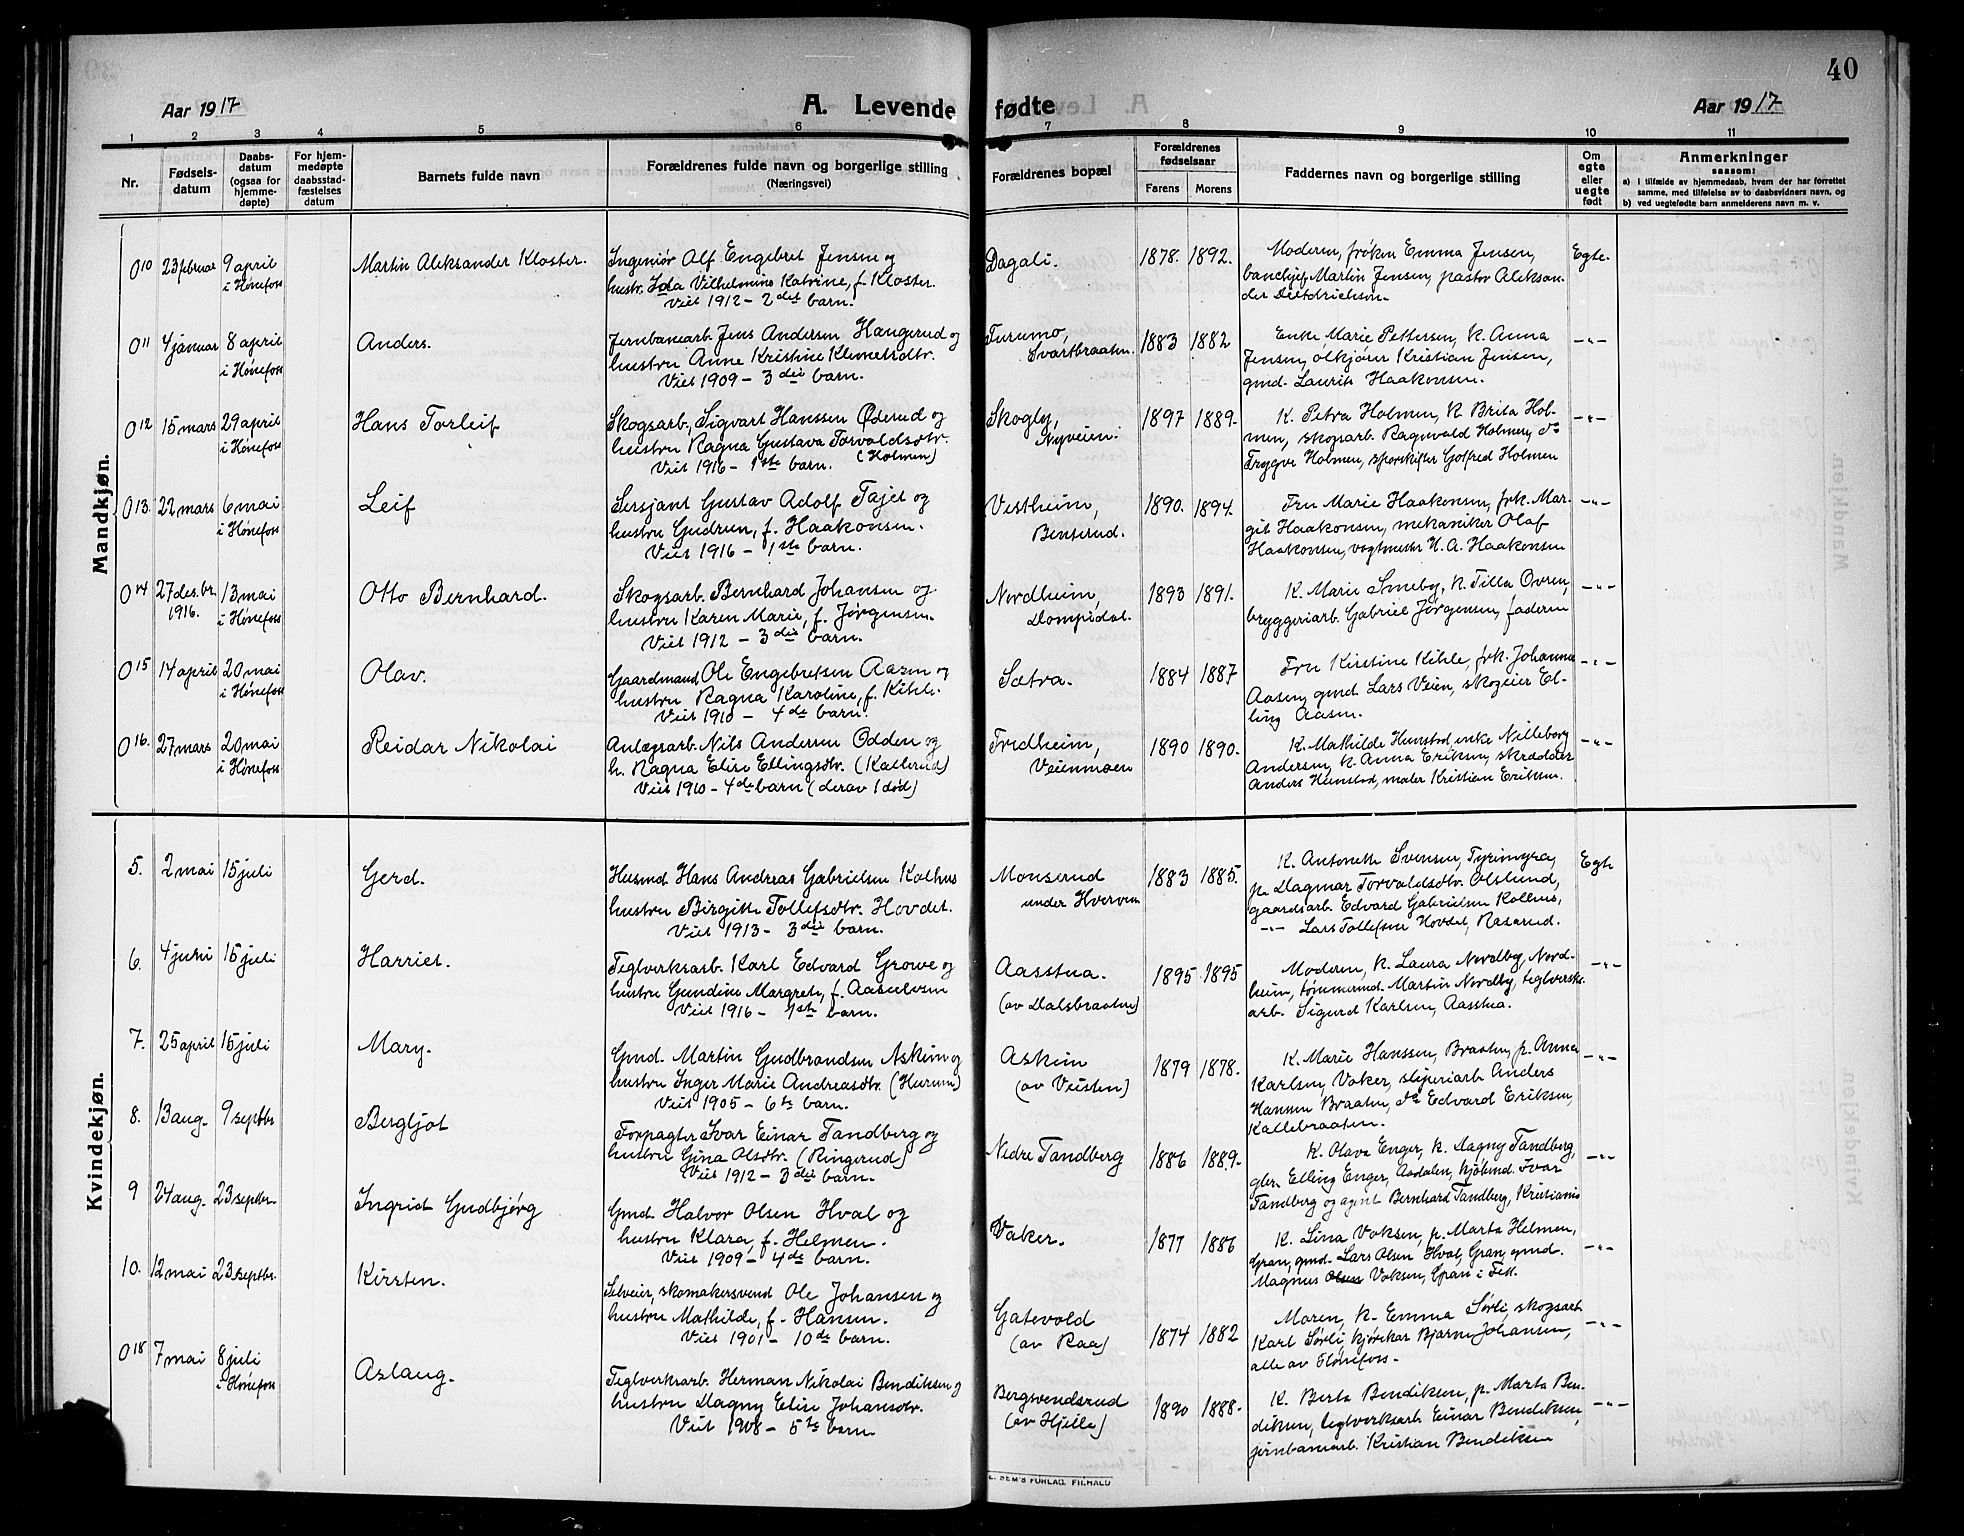 40
Aar 1917
A. Levende fødte
Aar 1917
1 2 3 4 5 6 7 8 9 10 11
Nr.
Fødsels-
datum
Daabs-
datum
(ogsaa for
hjemme-
døpte)
For hjem-
medøpte
daabsstad-
fæstelses
datum
Barnets fulde navn
Forældrenes fulde navn og borgerlige stilling
(Næringsvei)
Forældrenes bopæl
Forældrenes
fødselsaar
Farens
Morens
Faddernes navn og borgerlige stilling
Om
egte
eller
uegte
født
Anmerkninger
saasom:
a) i tilfælde av hjemmedaab, hvem der har forrettet
samme, med tilføielse av to daabsvidners navn, og
b) ved uegtefødte barn anmelderens navn m. v.
Mandkjøn.
010
23 februar
9 april
i Hønefoss
Martin Aleksander Kloster.
Ingeniør Alf Engebret Jensen og
hustr. Ida Vilhelmine Katrine, f. Kloster.
Viet 1912 – 2det barn.
Dagali.
1878.
1892.
Moderen, frøken Emma Jensen,
banechef Martin Jensen, pastor Aleksan-
der Dietdrichson.
Egte.
011
4 januar
8 april
i Hønefoss
Anders.
Jernbanearb. Jens Andersen Haugerud og
hustru Anne Kristine Klemetsdtr.
Viet 1909 – 3die barn.
Furumo,
Svartbraaten.
1883
1882
Enke Marie Pettersen, K. Anna
Jensen, ølkjører Kristian Jensen,
gmd. Laurits Haakonsen.
-"-
012
15 mars
29 april
i Hønefoss
Hans Torleif
Skogsarb. Sigvart Hanssen Øderud og
hustru Ragna Gustava Torvaldsdtr.
Viet 1916 – 1ste barn. (Holmen)
Skogly,
Nyveien.
1897
1889.
K. Petra Holmen, K. Brita Hol-
men, skogarb. Ragnvald Holmen, do
Trygve Holmen, sporskifter Gotfred Holmen
-"-
013.
22 mars
6 mai
i Hønefoss
Leif
Sersjant Gustav Adolf Tajet og
hustru Gudrun, f. Haakonsen.
Viet 1916 – 1ste barn.
Vestheim,
Benserud.
1890.
1894.
Fru Marie Haakonsen, frk. Mar-
git Haakonsen, mekaniker Olaf
Haakonsen, vogtmester H. A. Haakonsen
-"-
014
27 des.br.
1916.
13 mai
i Hønefoss
Otto Bernhard.
Skogsarb. Bernhard Johansen og
hustru Karen Marie, f. Jørgensen.
Viet 1912 – 3die barn.
Nordheim,
Dompidal.
1893
1891.
K. Marie Smeby, K. Tilla Ovren,
bryggeriarb. Gabriel Jørgensen, faderen
-"-
015
14 april
20 mai
i Hønefoss
Olav.
Gaardmand Ole Engebretsen Aasen og
hustru Ragna Karoline, f. Kihle.
Viet 1910 – 4de barn.
Sætra.
1884
1887
Fru Kirstine Kihle, frk. Johanne
Aasen, gmd Lars Veien, skogeier El-
ling Aasen.
-"-
016.
27 mars
20 mai
i Hønefoss
Reidar Nikolai
Anlægsarb. Nils Andersen Odden og
h. Ragna Elise Ellingsdtr. (Kallerud)
Viet 1910 – 4de barn (derav 1 død)
Fredheim,
Veienmoen
1890
1890.
K. Mathilde Hunstad, enke Nilleborg
Andersen, K. Anna Eriksen, skrædder
Anders Hunstad, maler Kristian Eriksen.
-"-
Kvindekjøn.
5.
2 mai
15 juli
Gerd.
Husmd. Hans Andreas Gabrielsen Kolhus
hustru Birgitte Tollefsdtr. Hovdet.
Viet 1913 – 3die barn.
Monserud
under Hverven
1883
1885.
K. Antonette Svensen, Tyrimyra,
p. Dagmar Torvaldsdtr. Olslund,
gaardsarb. Edvard Gabrielsen Kolhus,
-"- Lars Tollefsen Hovdet, Raserud.
Egte
6.
4 juni
15 juli
Harriet.
Teglverksarb. Karl Edvard Growe og
hustru Gundine Margrete, f. Aasulvsen
Viet 1916 – 1ste barn.
Aasstua.
(av Dalsbraaten)
1895
1895
Moderen, K. Laura Nordby, Nord-
heim, tømmermd. Martin Nordby, teglverks-
arb. Sigurd Karlsen, Aasstua.
-"-
7.
25 april
15 juli
Mary.
Gmd. Martin Gudbrandsen Askim og
hustru Inger Marie Andreasdtr. (Hurum)
Viet 1905 – 6te barn.
Askim
(av Veisten)
1879
1878.
K. Marie Hanssen, Braaten, p. Anna
Karlsen, Vaker, sliperiarb Anders
Hansen Braaten, do Edvard Eriksen,
Kallebraaten.
-"-
8.
13 aug.
9 septbr
Bergljot
Forpagter Ivar Einar Tandberg og
hustru Gina Olsdtr. (Ringerud)
Viet 1912 – 3die barn.
Nedre Tandberg
1886
1889.
K. Olava Enger, K. Dagny Tandberg,
gbr. Elling Enger, Aadalen, kjøbmd. Ivar
Tandberg og agent Bernhard Tandberg, Kristiania
-"-
9
24 aug.
23 septbr.
Ingrid Gudbjørg
Gmd. Halvor Olsen Hval og
hustru Klara, f. Helmen.
Viet 1909 – 4de barn.
Vaker.
1877
1886
K. Lina Voksen, p. Marta Helmen,
Gran, gmd. Lars Olsen Hval, Gran, gmd.
Magnus Olsen Voksen, Gran i Fet.
-"-
10.
12 mai
23 septbr.
Kirsten.
Selveier, skomakersvend Ole Johansen og
hustru Mathilde, f. Hansen.
Viet 1901 – 10de barn.
Gatevold
(av Raa)
1874
1882
Moren, K. Emma Sørli, skogsarb.
Karl Sørli, kjørekar Bjarne Johansen,
alle av Hønefoss.
-"-
018
7 mai
8 juli
i Hønefoss
Aslaug.
Teglverksarb. Herman Nikolai Bendiksen og
hustru Dagny Elise Johansdtr.
Viet 1908 – 5te barn.
Bergsvendsrud
(av Hjelle)
1890
1888.
K. Berta Bendiksen, p. Marta Ben-
diksen, teglverksarb. Einar Bendiksen,
jernbanearb. Kristian Bendiksen
-"-
E. SEM'S FORLAG, FR.HALD